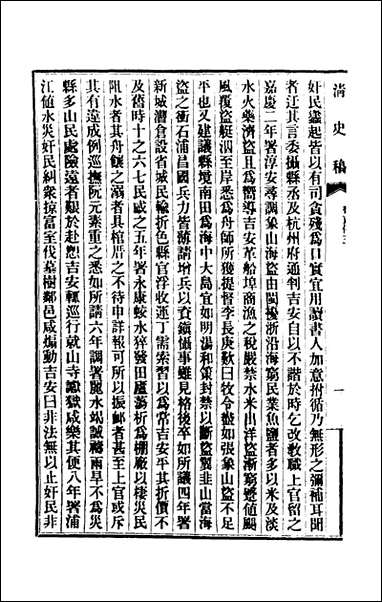 清史稿
一
奸民蠭起皆以有司貪殘爲口實宜用讀書人加意拊循乃無形之彌補耳聞
者迂其言委攝縣丞及杭州府通判吉安自以不諧於時乞改教職上官留之
嘉慶二年署淳安尋調象山海盜由閩擾浙沿海窮民業魚鹽者多以米及淡
水火藥濟盜且爲嚮導吉安革船埠商漁之稅嚴禁水米出洋盜漸窮蹙値颶
風覆盜艇泅至岸悉爲舟師所獲提督李長庚歎曰牧令盡如張象山盜不足
平也又建議縣境南田爲海中大島宜如明湯和策封禁以斷盜翼韭山當海
盜之衝石浦昌國兵力皆薄請增兵以資鎭懾事雖見格後卒如所議四年署
新城漕倉設省城民輸折色縣官浮收運丁需索習以爲常吉安平其折價不
及舊時十之六七民感之五年署永康蛟水猝發田廬蕩析爲棚廠以棲災民
阻水者具舟餽之溺者具棺厝之不待申詳報可所以振卹者甚至上官或斥
其有違成例巡撫阮元素重之悉如所請六年調署麗水竭誠禱雨旱不爲災
縣多山民處險遠者艱於赴愬吉安輕巡行就山寺讞獄咸樂其便八年署浦
江値水災奸民糾衆掠富室伐墓樹鄰邑咸煽動吉安曰非法無以止奸民非